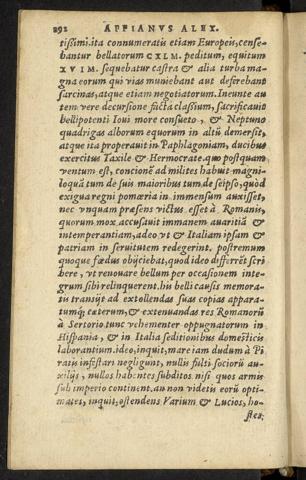 292 APPIANVS ALEX.
tissimi.ita connumeratis etiam Europeis, cense
bantur bellatorum CXLM. peditum, equitum
XVIM. sequebatur castra & alia turba ma
gna eorum qui vias muniebant aut deferebant
sarcinas, atque etiam negotiatorum. Ineunte au
tem vere decursione facta classium, sacrificauit
bellipotenti Ioui more consueto, & Neptuno
quadrigas alborum equorum in altũ demersit,
atque ita properauit in Paphlagoniam, ducibus
exercitus Taxile & Hermocrate.quo postquam
ventum est, concionẽ ad milites habuit magni-
loquã tum de suis maioribus tum de seipso, quòd
exigua regni pomœria in immensum auxisset,
nec vnquam præsens victus esset à Romanis,
quorum mox accusauit immanem auaritiã &
intemperantiam, adeo vt & Italiam ipsam &
patriam in seruitutem redegerint. postremum
quoque fœdus obijciebat, quod ideo differrẽt scri
bere, vt renouare bellum per occasionem inte-
grum sibi relinquerent. his belli causis memora-
tis transijt ad extollendas suas copias appara-
tumq; cæterum, & extenuandas res Romanorũ
à Sertorio tunc vehementer oppugnatorum in
Hispania, & in Italia seditionibus domesticis
laborantium.ideo, inquit, mare iam dudum à Pi
ratis infestari negligunt, nullis fulti sociorũ au-
xilijs, nullos habentes subditos nisi quos armis
sub imperio continent. an non videtis eorũ opti-
mates, inquit, ostendens Varium & Lucios, ho-
stes